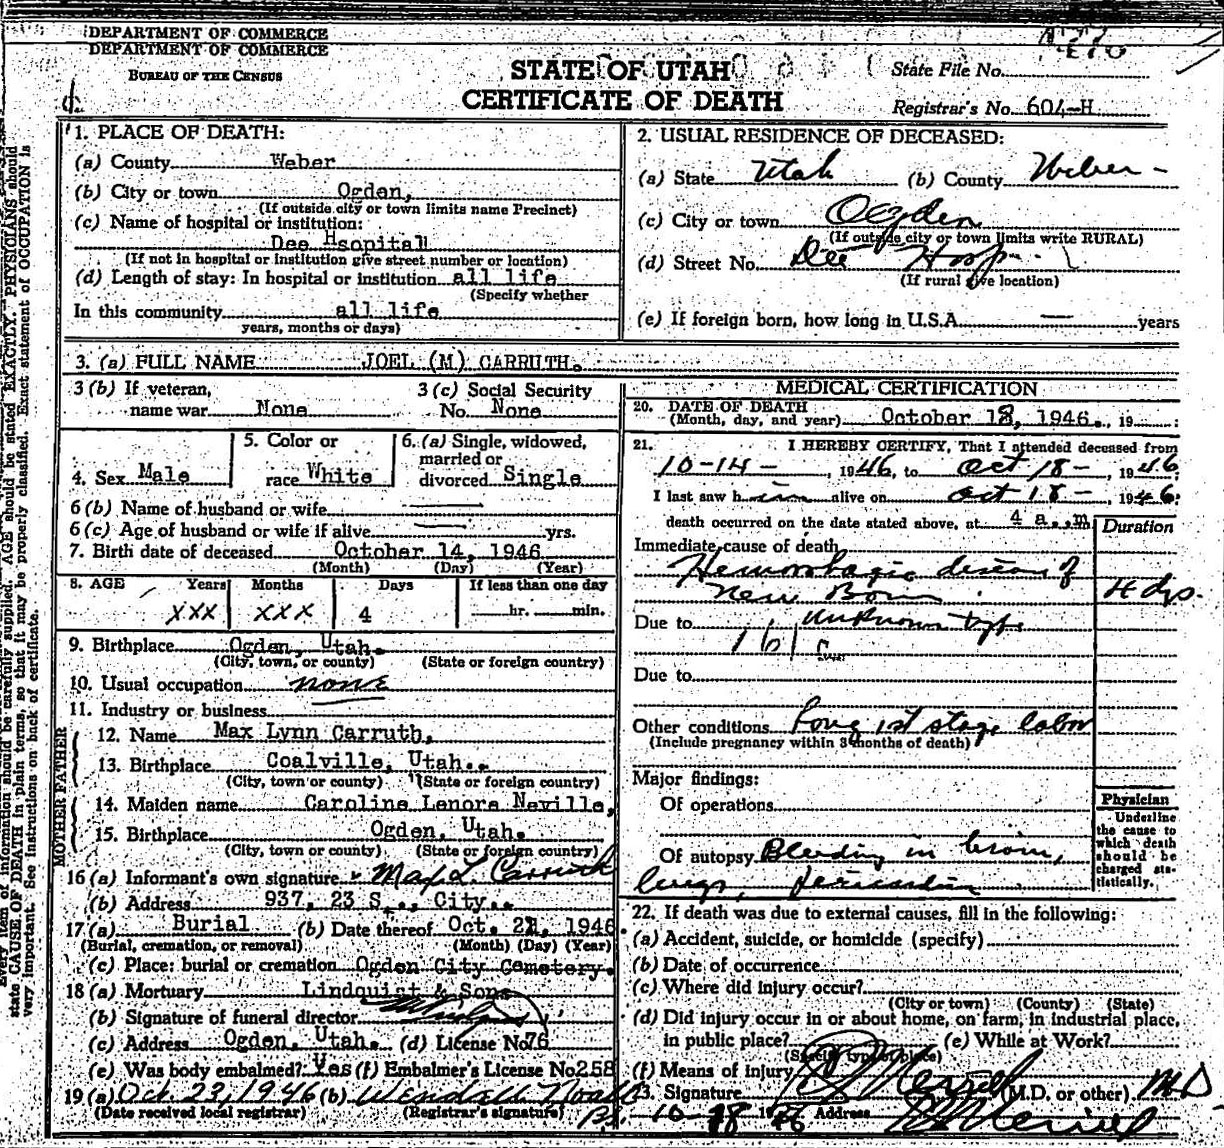 DEPARTMENT OF COMMERCE
DEPARTMENT OF COMMERCE
BUREAU OF THE CENSUS
STATE OF UTAH
CERTIFICATE OF DEATH
State File No.
Registrar's No. 604-H
1. PLACE OF DEATH:
(a) County Weber
(b) City or town Ogden,
(If outside city or town limits name Precinct)
(c) Name of hospital or institution:
Dee Hsopital
(If not in hospital or institution give street number or location)
(d) Length of stay: In hospital or institution all life
(Specify whether
In this community all life
years, months or days)
2. USUAL RESIDENCE OF DECEASED:
(a) State Utah (b) County Weber-
(c) City or town Ogden
(If outside city or town limits write RURAL)
(d) Street No. Dee Hosp.
(If rural give location)
(e) If foreign born, how long in U.S.A. — years
3. (a) FULL NAME JOEL (M) CARRUTH.
3 (b) If veteran, name war None
3 (c) Social Security No. None
4. Sex Male
5. Color or race White
6. (a) Single, widowed, married or divorced Single
6 (b) Name of husband or wife
6 (c) Age of husband or wife if alive yrs.
7. Birth date of deceased October 14, 1946
(Month) (Day) (Year)
8. AGE Years Months Days If less than one day
XXX XXX 4 hr. min.
9. Birthplace Ogden, Utah.
(City, town, or county) (State or foreign country)
10. Usual occupation none
11. Industry or business
FATHER
12. Name Max Lynn Carruth,
13. Birthplace Coalville, Utah..
(City, town or county) (State or foreign country)
MOTHER
14. Maiden name Caroline Lenore Neville,
15. Birthplace Ogden, Utah.
(City, town or county) (State or foreign country)
16 (a) Informant's own signature Max L. Carruth
(b) Address 937, 23 St., City..
17 (a) Burial (b) Date thereof Oct. 21, 1946
(Burial, cremation, or removal) (Month) (Day) (Year)
(c) Place: burial or cremation Ogden City Cemetery.
18 (a) Mortuary Lindquist & Sons
(b) Signature of funeral director
(c) Address Ogden, Utah. (d) License No 76
(e) Was body embalmed? Yes (f) Embalmer's License No 258
19 (a) Oct. 23, 1946 (b) Wendell
(Date received local registrar) (Registrar's signature)
MEDICAL CERTIFICATION
20. DATE OF DEATH
(Month, day, and year) October 18, 1946., 19
21. I HEREBY CERTIFY, That I attended deceased from
10-14-, 1946, to Oct 18-, 1946
I last saw him alive on Oct 18-, 1946:
death occurred on the date stated above, at 4 a..m
Duration
Immediate cause of death
Hemorrhagic disease of
New Born 4 dys.
Due to unknown type
161
Due to
Other conditions Long 1st stage labor
(Include pregnancy within 3 months of death)
Major findings:
Of operations
Of autopsy Bleeding in brain,
lungs, pericardium
Physician
Underline the cause to which death should be charged statistically.
22. If death was due to external causes, fill in the following:
(a) Accident, suicide, or homicide (specify)
(b) Date of occurrence
(c) Where did injury occur?
(City or town) (County) (State)
(d) Did injury occur in or about home, on farm, in industrial place,
in public place? (e) While at Work?
(Specify type of place)
(f) Means of injury
23. Signature Merrill (M.D. or other) M D
10-18 1946 Address
state CAUSE OF DEATH in plain terms, so that it may be properly classified. Exact statement of OCCUPATION is
very important. See instructions on back of certificate.